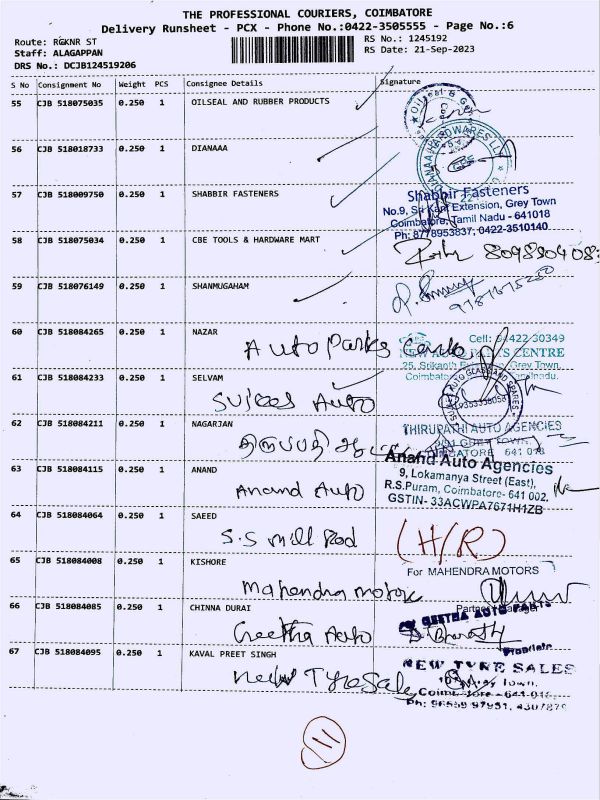 THE PROFESSIONAL COURIERS, COIMBATORE
Delivery Runsheet - PCX - Phone No.:0422-3505555 - Page No.:6
Route: RGKNR ST
RS No.: 1245192
Staff: ALAGAPPAN
RS Date: 21-Sep-2023
DRS No.: DCJB124519206
S No Consignment No Weight PCS Consignee Details Signature
55 CJB 518075035 0.250 1 OILSEAL AND RUBBER PRODUCTS
56 CJB 518018733 0.250 1 DIANAAA
57 CJB 518009750 0.250 1 SHABBIR FASTENERS
Shabbir Fasteners
No.9, Sri Kant Extension, Grey Town
Coimbatore, Tamil Nadu - 641018
Ph: 8778953837, 0422-3510140
58 CJB 518075034 0.250 1 CBE TOOLS & HARDWARE MART
59 CJB 518076149 0.250 1 SHANMUGHAM
60 CJB 518084265 0.250 1 NAZAR
Auto Parks Centre
Cell: 94422 30349
NEW AUTO PARTS CENTRE
25, Srikanth Extension, Grey Town,
61 CJB 518084233 0.250 1 SELVAM
Auto
62 CJB 518084211 0.250 1 NAGARJAN
THIRUPATHI AUTO AGENCIES
திருப்பதி ஆட்டோ
63 CJB 518084115 0.250 1 ANAND
Anand Auto
Anand Auto Agencies
9, Lokamanya Street (East),
R.S.Puram, Coimbatore- 641 002.
GSTIN- 33ACWPA7671H1ZB
64 CJB 518084064 0.250 1 SAEED
S.S mill Rod
(H/R)
65 CJB 518084008 0.250 1 KISHORE
For MAHENDRA MOTORS
Mahendra motors
66 CJB 518084085 0.250 1 CHINNA DURAI
GEETHA AUTO PARTS
Geetha Auto
67 CJB 518084095 0.250 1 KAVAL PREET SINGH
NEW TYRE SALES
New Tyre Sales
11